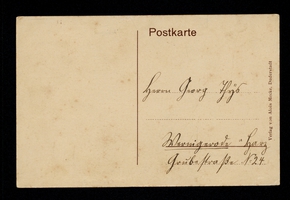 Postkarte
Herrn Georg Thÿs
Wernigerode Harz
Grubestraße N 24
Verlag von Alois Mecke, Duderstadt